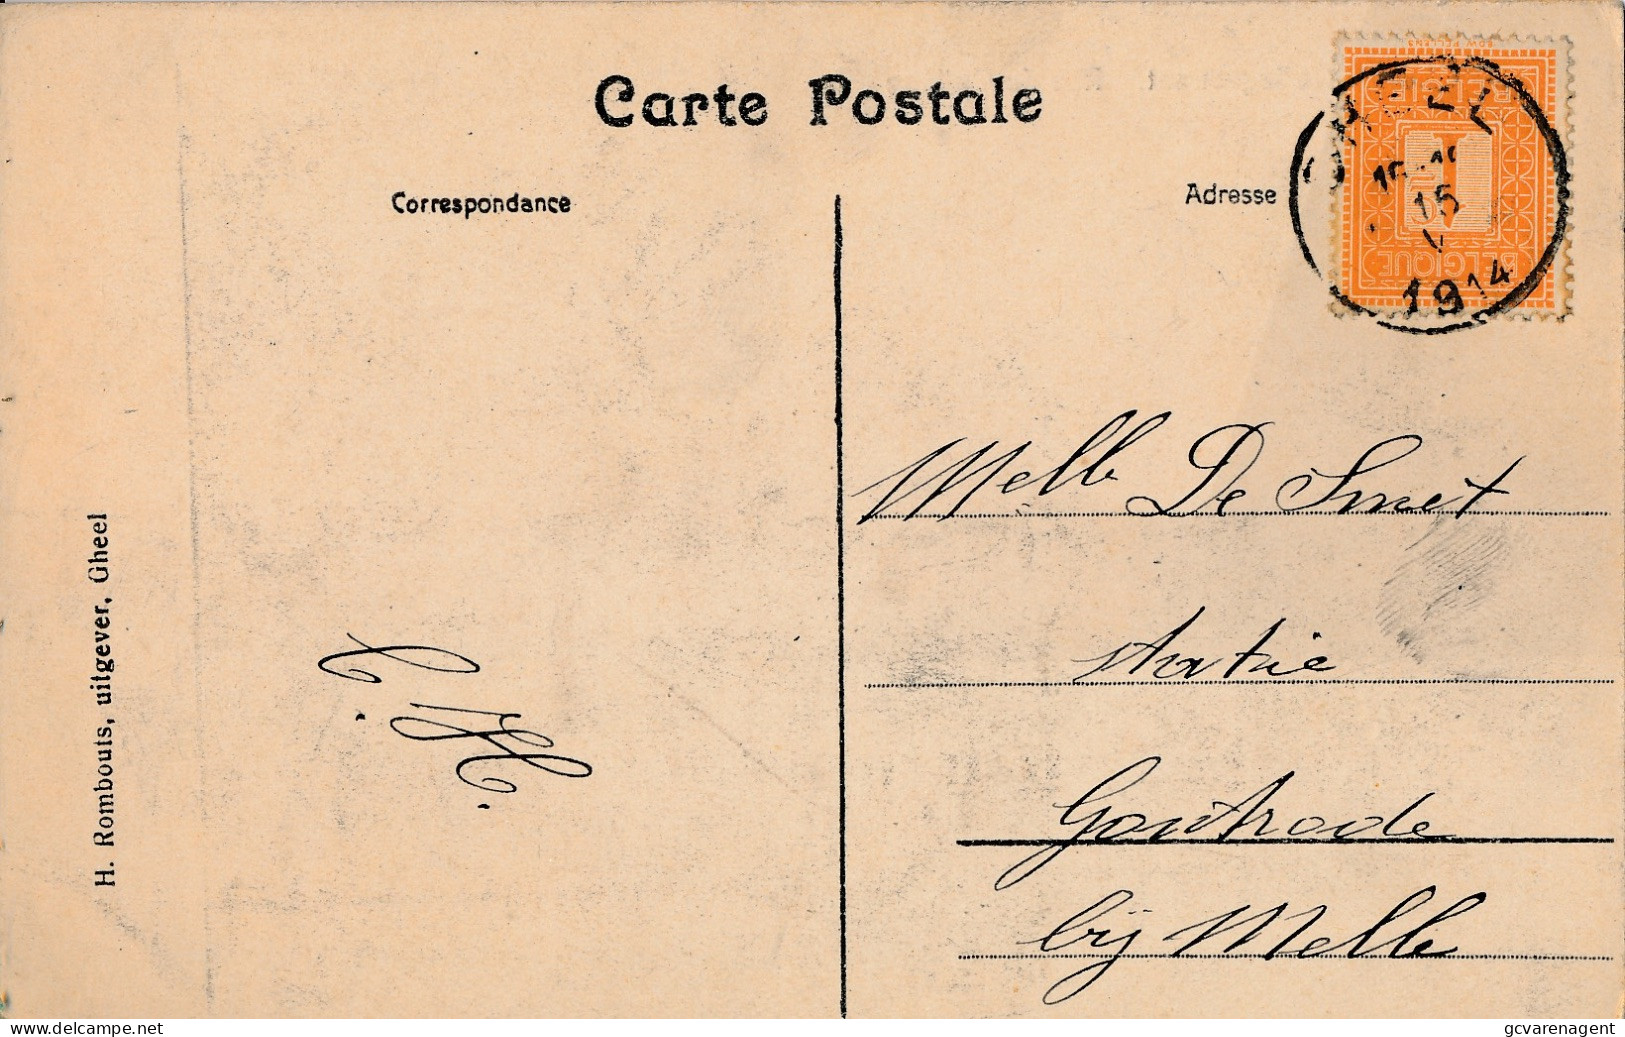 Carte Postale
Correspondance
Adresse
BELGIË
1
BELGIQUE
GHEEL
15
1914
Melle De Smet
statie
Gontrode
bij Melle
C. H.
H. Rombouts, uitgever, Gheel
www.delcampe.net
gcvarenagent